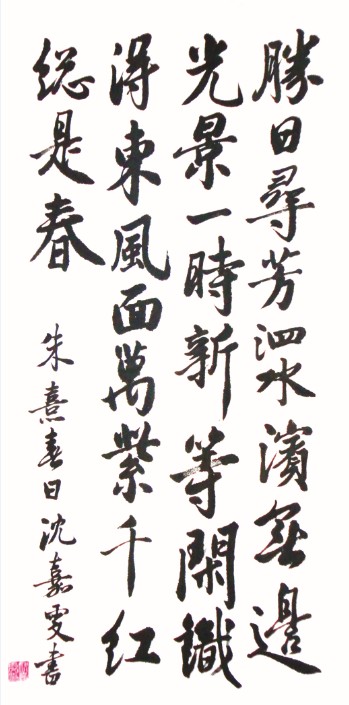 勝日尋芳泗水濱無邊
光景一時新等閑識
得東風面萬紫千红
總是春
朱熹春日沈嘉雯書